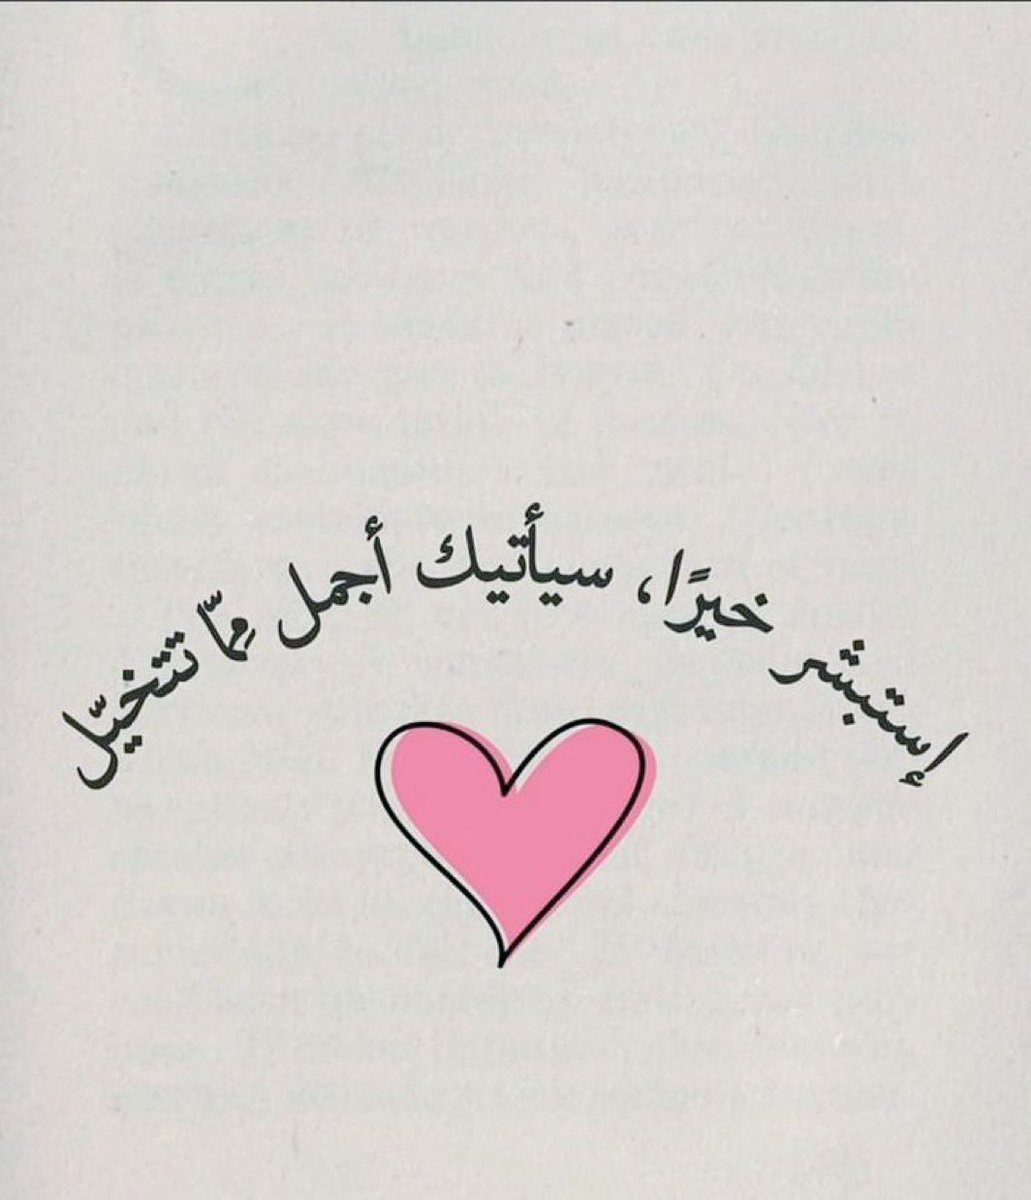 إستبشر خيرًا، سيأتيك أجمل مِمّا تتخيّل